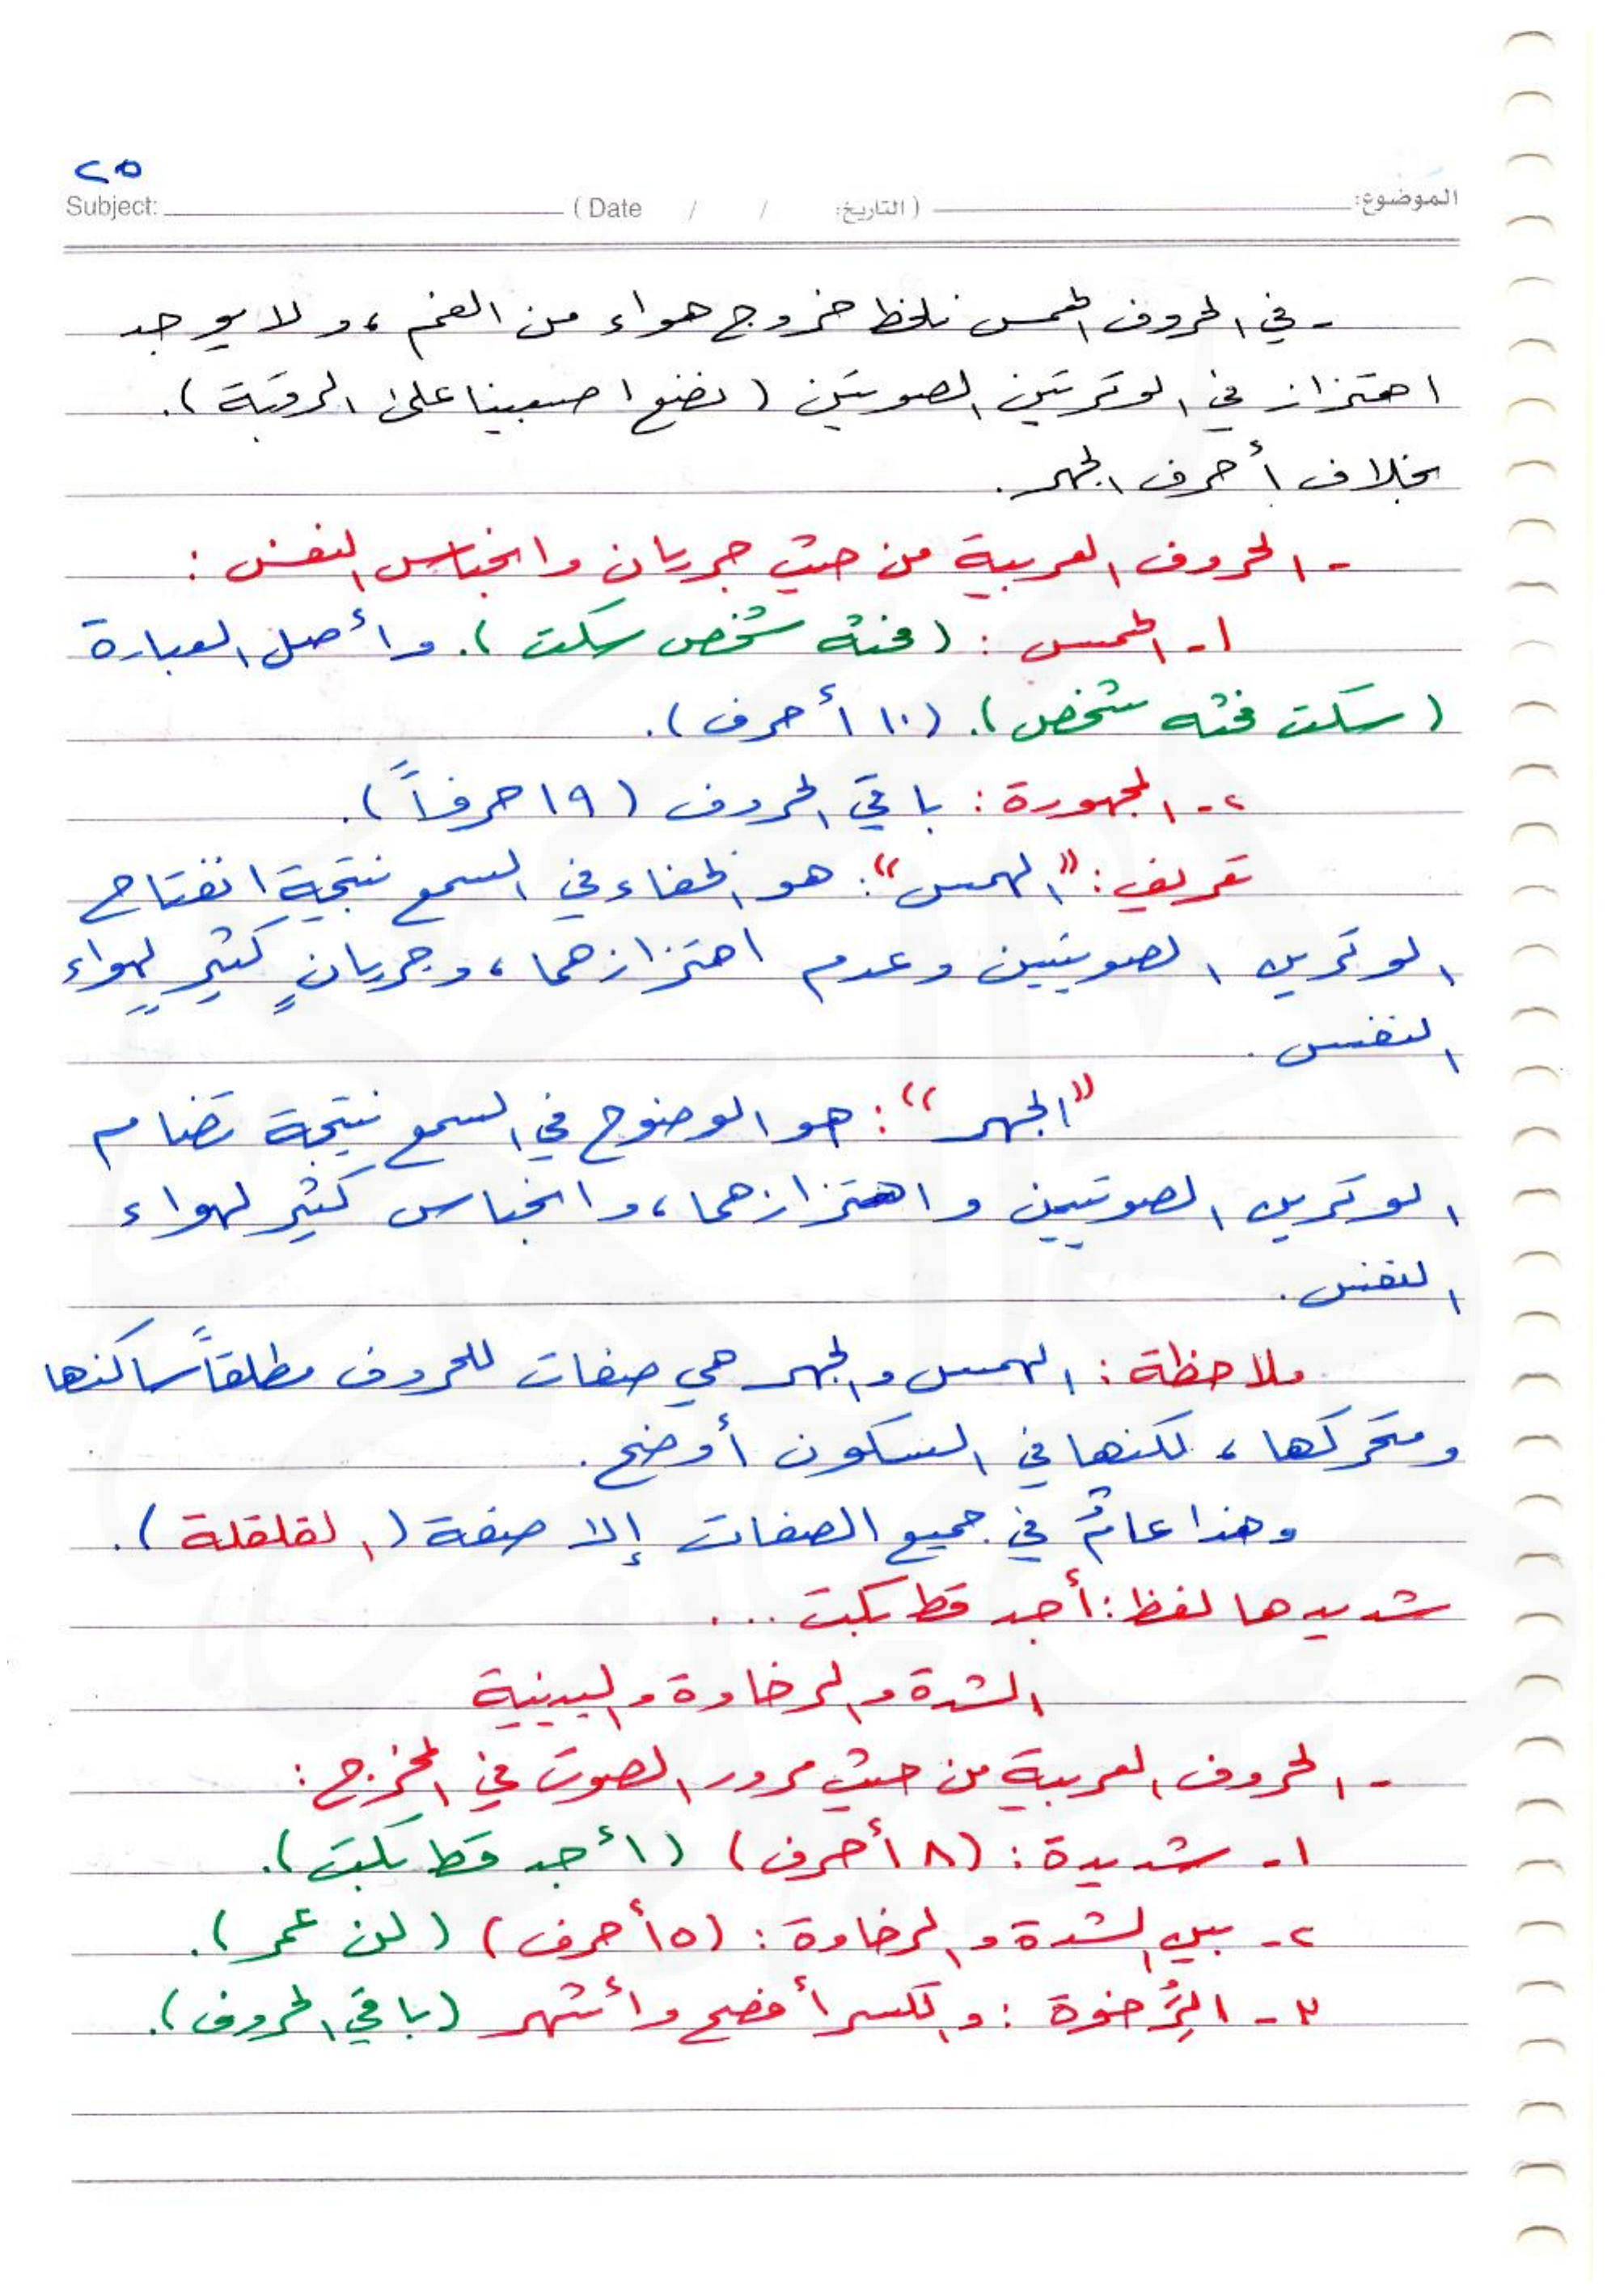 ٢٥
Subject: ( Date / / التاريخ: ) الموضوع:
- في الحروف الهمس نلحظ خروج هواء من الفم ، و لا يوجد
اهتزاز في الوترتين الصوتين ( نضع اصبعينا على الرقبة ).
بخلاف أحرف الجهر .
- الحروف العربية من حيث جريان وانحباس النفس :
١- الهمس : ( فحثه شخص سكت ). وأصل العبارة
( سكت فحثه شخص ). (١٠ أحرف ).
٢- المجهورة : باقي الحروف ( ١٩ حرفاً ).
تعريف : " الهمس " : هو الخفاء في السمع نتيجة انفتاح
الوترين الصوتيين وعدم اهتزازهما ، وجريانٍ كثيرٍ لهواء
النفس .
" الجهر " : هو الوضوح في السمع نتيجة تضام
الوترين الصوتيين و اهتزازهما ، وانحباس كثير لهواء
النفس .
ملاحظة : الهمس والجهر هي صفات للحروف مطلقاً ساكنها
ومتحركها ، لكنها في السكون أوضح .
وهذا عامٌ في جميع الصفات إلا صفة ( القلقلة ).
شديدها لفظ : أجد قط بكت ...
الشدة والرخاوة والبينية
- الحروف العربية من حيث مرور الصوت في المخرج :
١- شديدة : (٨ أحرف ) ( أجد قط بكت ).
٢- بين الشدة والرخاوة : (٥ أحرف ) ( لن عمر ).
٣- الرُِخوة : والكسر أفصح وأشهر ( باقي الحروف ).